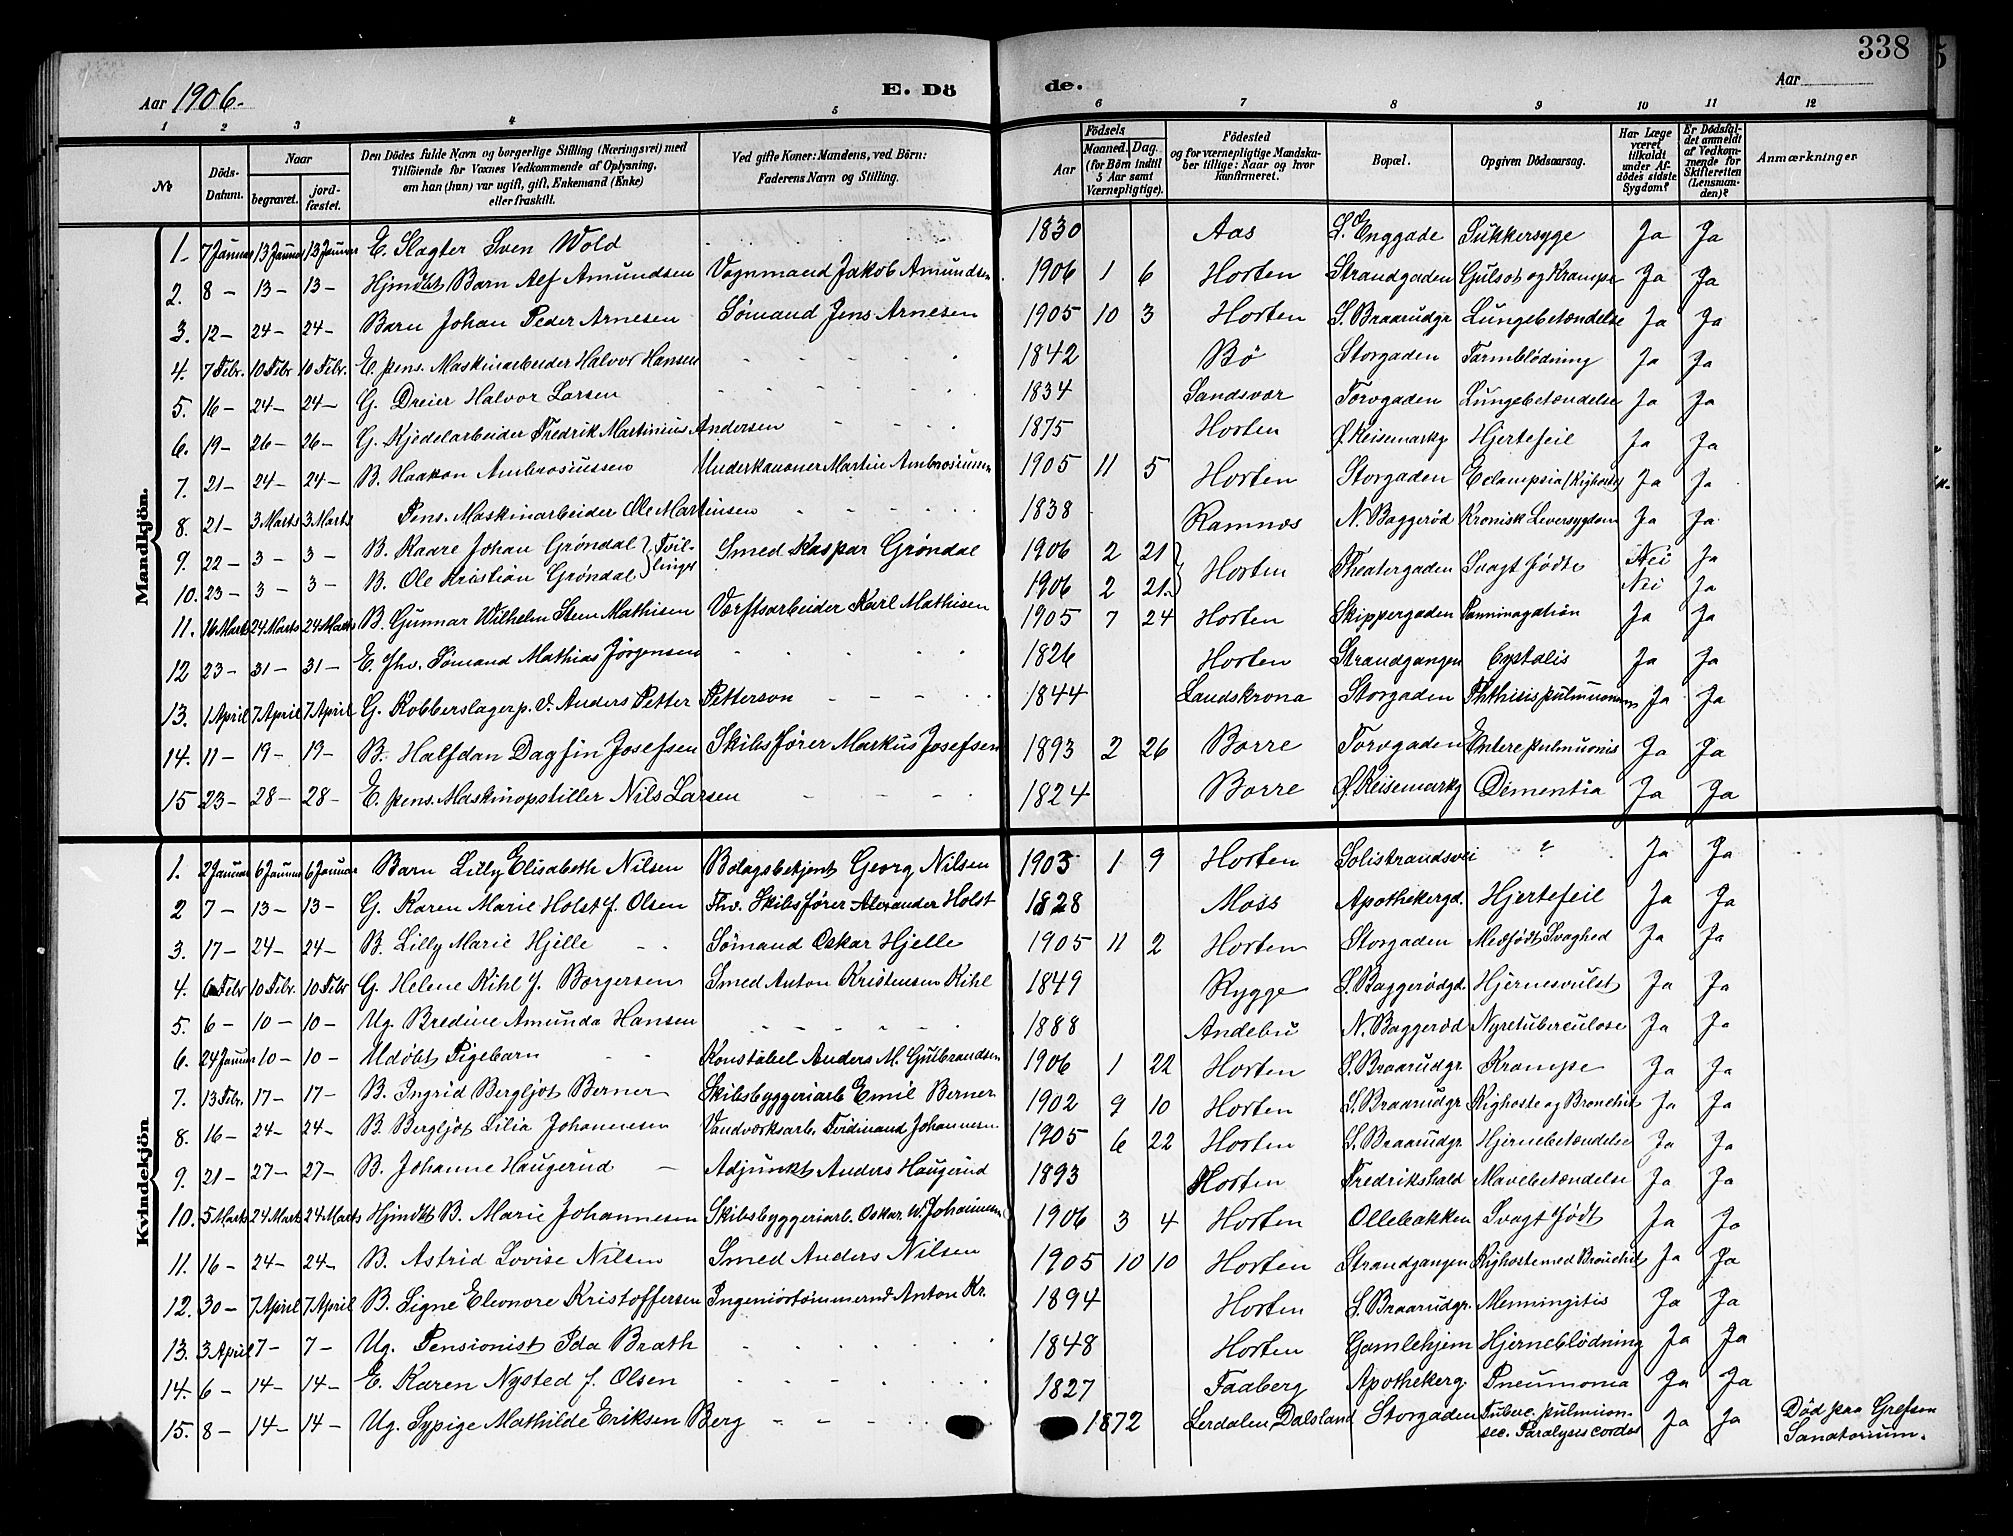 338
Aar 1906. E. Dö de. Aar
1 2 3 4 5 6 7 8 9 10 11 12
№ Döds-Datum. Naar begravet. jord-fæstet. Den Dödes fulde Navn og borgerlige Stilling (Næringsvei) med Tilföiende for Voxnes Vedkommende af Oplysning, om han (hun) var ugift, gift, Enkemand (Enke) eller fraskilt. Ved gifte Koner: Mandens, ved Börn: Faderens Navn og Stilling. Födsels Aar Maaned. Dag. (for Börn indtil 5 Aar samt Værnepligtige). Födested og for værnepligtige Mandskaber tillige: Naar og hvor konfirmeret. Bopæl. Opgiven Dödsaarsag. Har Læge været tilkaldt under Afdödes sidste Sygdom? Er Dödsfaldet anmeldt af Vedkommende for Skifteretten (Lensmanden)? Anmærkninger
Mandkjön.
1. 7 Januar 13 Januar 13 Januar E. Slagter Sven Wold 1830 Aas S. Enggade Sukkersyge Ja Ja
2. 8 – 13 – 13 – Hjmdbt Barn Alf Amundsen Vognmand Jakob Amundsen 1906 1 6 Horten Strandgaden Gulsot og Krampe Ja Ja
3. 12 – 24 – 24 – Barn Johan Peder Arnesen Sömand Jens Arnesen 1905 10 3 Horten S. Braarudgr Lungebetændelse Ja Ja
4. 7 Febr. 10 Febr 10 Febr. E. pens. Maskinarbeider Halvor Hansen 1842 Bö Storgaden Tarmblödning Ja Ja
5. 16 – 24 – 24 – G. Dreier Halvor Larsen 1834 Sandsvær Torvgaden Lungebetændelse Ja Ja
6. 19 – 26 – 26 – G. Kjedelarbeider Fredrik Martinius Andersen 1875 Horten Ø. Keisemarkg Hjertefeil Ja Ja
7. 21 – 24 – 24 – B. Haakon Ambrosiussen Underkanoner Martin Ambrosiussen 1905 11 5 Horten Storgaden Eclampsia (Kighoste) Ja Ja
8. 21 – 3 Marts 3 Marts Pens. Maskinarbeider Ole Martinsen 1838 Ramnæs N. Baggeröd Kronisk Leversygdom Ja Ja
9. 22 – 3 – 3 – B. Kaare Johan Gröndal } Tvil- Smed Kaspar Gröndal 1906 2 21 } Horten Theatergaden Svagt födte Nei Ja
10. 23 – 3 – 3 – B. Ole Kristian Gröndal } linger 1906 2 21 } Nei Ja
11. 16 Marts 24 Marts 24 Marts B. Gunnar Wilhelm Stem Mathisen Værftsarbeider Karl Mathisen 1905 7 24 Horten Skippergaden Ja Ja
12 23 – 31 – 31 – E. fhv. Sömand Mathias Jörgensen 1826 Horten Strandgangen Ja Ja
13. 1 April 7 April 7 April G. Kobberslager p. v. Anders Petter Petterson 1844 Landskrona Storgaden Phthisis pulmuonum Ja Ja
14. 11 – 19 – 19 – B. Halfdan Dagfin Josefsen Skibsförer Markus Josefsen 1893 2 26 Borre Torvgaden pulmuonis Ja Ja
15 23 – 28 – 28 – E. pens. Maskinopstiller Nils Larsen 1824 Borre Ø. Keisemarkg Dementia Ja Ja
Kvindekjön
1. 2 Januar 6 Januar 6 Januar Barn Lilly Elisabeth Nilsen Bolagsbetjent Georg Nilsen 1903 1 9 Horten Solistrandsvei ? Ja Ja
2 7 – 13 – 13 – G. Karen Marie Holst f. Olsen Fhv. Skibsförer Alexander Holst 1828 Moss Apothekergd. Hjertefeil Ja Ja
3. 17 – 24 – 24 – B. Lilly Marie Hjelle Sömand Oskar Hjelle 1905 11 2 Horten Storgaden Medfödt Svaghed Ja Ja
4. 6 Febr 10 Febr. 10 Febr G. Helene Kihl f. Borgersen Smed Anton Kristensen Kihl 1849 Rygge S. Baggerödgd. Hjernesvulst Ja Ja
5. 6 – 10 – 10 – Ug. Bredine Amunda Hansen 1888 Andebu N. Baggeröd Nyretuberculose Ja Ja
6. 24 Januar 10 – 10 – Udöbt Pigebarn Konstabel Anders M. Gulbrandsen 1906 1 22 Horten S. Braarudgr Krampe Ja Ja
7. 13 Febr. 17 – 17 – B. Ingrid Bergljot Berner Skibsbyggeriarb Emil Berner 1902 9 10 Horten S. Braarudgr Kighoste og Bronchit Ja Ja
8. 16 – 24 – 24 – B. Bergljot Lilia Johannesen Vandværksarb. Ferdinand Johannesen 1905 6 22 Horten S. Braarudgr. Hjernebetændelse Ja Ja
9. 21 – 27 – 27 – B. Johanne Haugerud Adjunkt Anders Haugerud 1893 Horten Fredrikshald Mavebetændelse Ja Ja
10. 5 Marts 24 Marts 24 Marts Hjmdbt B. Marie Johannesen Skibsbyggeriarb. Oskar W. Johannesen 1906 3 4 Horten Ollebakken Svagt födt Ja Ja
11. 16 – 24 – 24 – B. Astrid Lovise Nilsen Smed Anders Nilsen 1905 10 10 Horten Strandgangen Kighoste med Bronchit Ja Ja
12. 30 – 7 April 7 April B. Signe Eleonore Kristoffersen Ingeniörtömmermd Anton Kr. 1894 Horten S. Braarudgr. Menningitis Ja Ja
13. 3 April 7 – 7 – Ug. Pensionist Ida Brath 1848 Horten Gamlehjem Hjerneblödning Ja Ja
14. 6 – 14 – 14 – E. Karen Nysted f. Olsen 1827 Faaberg Apothekerg Pneumonia Ja Ja
15. 8 – 14 – 14 – Ug. Sypige Mathilde Eriksen Berg 1872 Serdalen, Dalsland Storgaden Tuberc. pulmuon. sec. Paralysis cordis Ja Ja Död paa Grefsen Sanatorium.